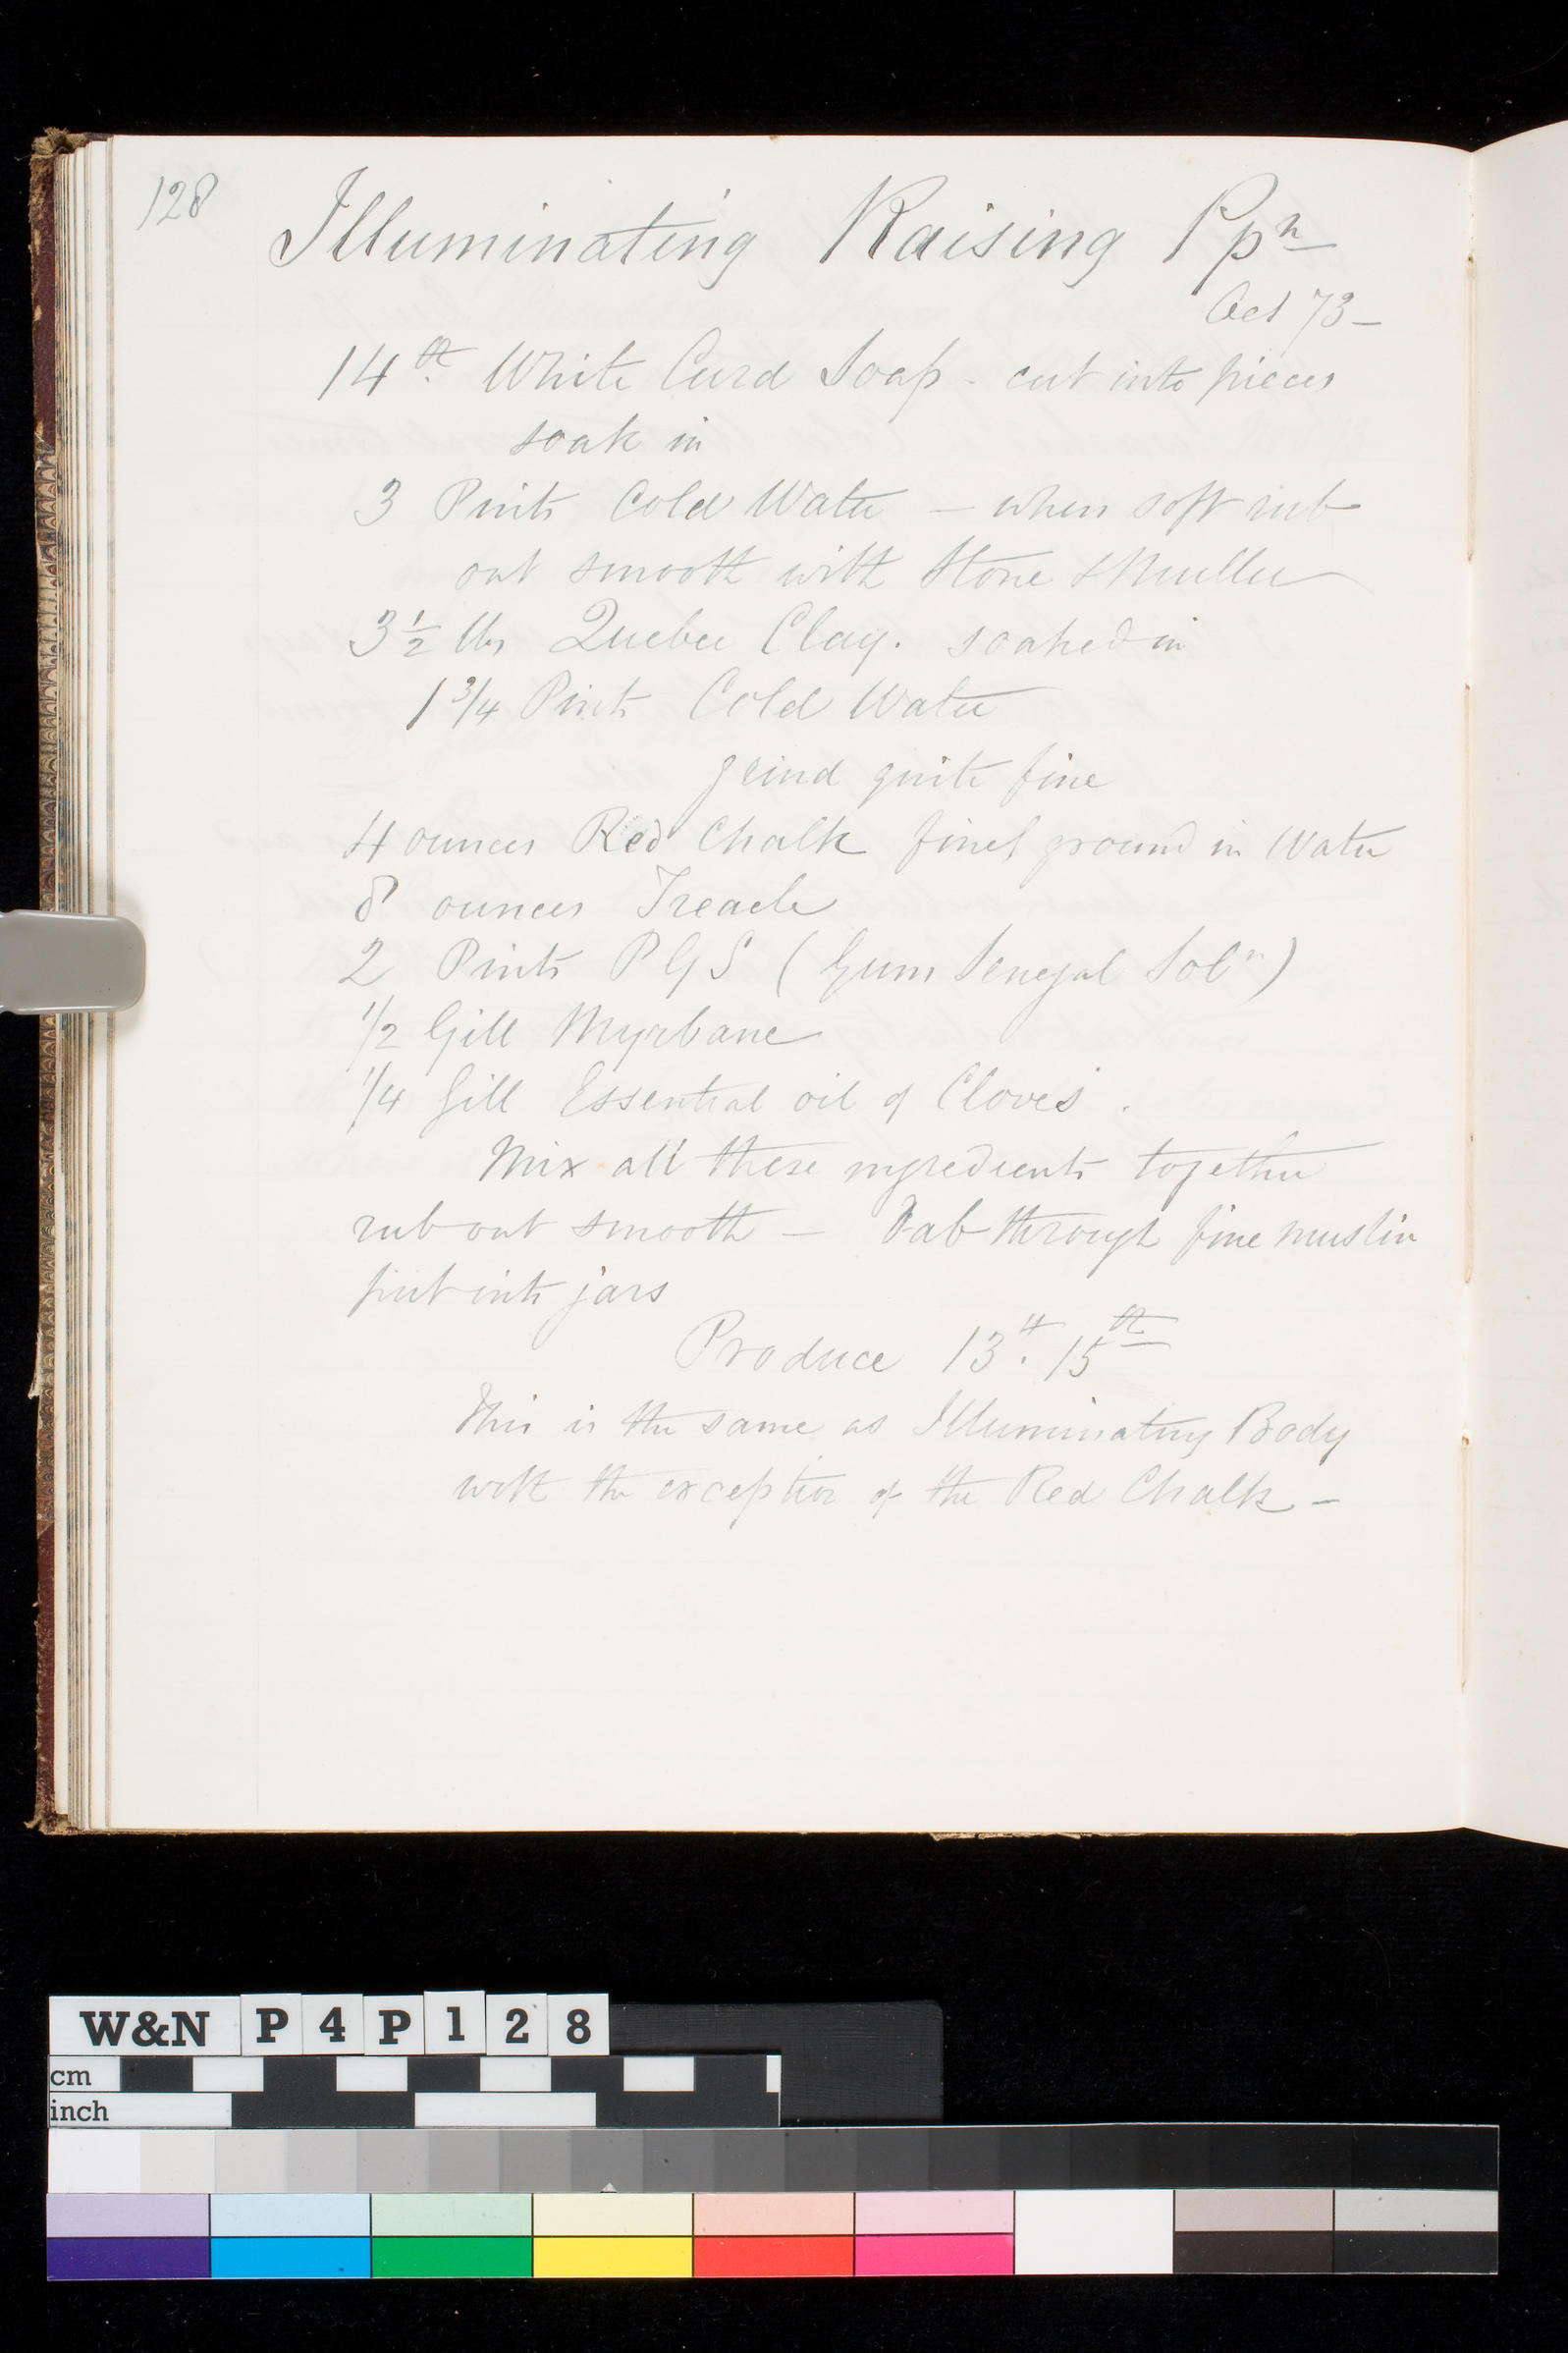 128
Illuminating Raising Ppn
Oct 73 -
14 White Curd Soap - cut into pieces
soak in
3 Pints Cold Water - when soft rub
out smooth with Stone & Muller
3 1/2 lbs Quebec Clay. soaked in
1 3/4 Pints Cold Water
grind quite fine
4 ounces Red Chalk finely ground in Water
8 ounces Treacle
2 Pints P G S (Gum Senegal Soln)
1/2 Gill Myrbane
1/4 Gill Essential oil of Cloves.
Mix all these ingredients together
rub out smooth - Dab through fine muslin
put into jars
Produce 13 . 15
This is the same as Illuminating Body
with the exception of the Red Chalk -
W&N P4P128
cm
inch